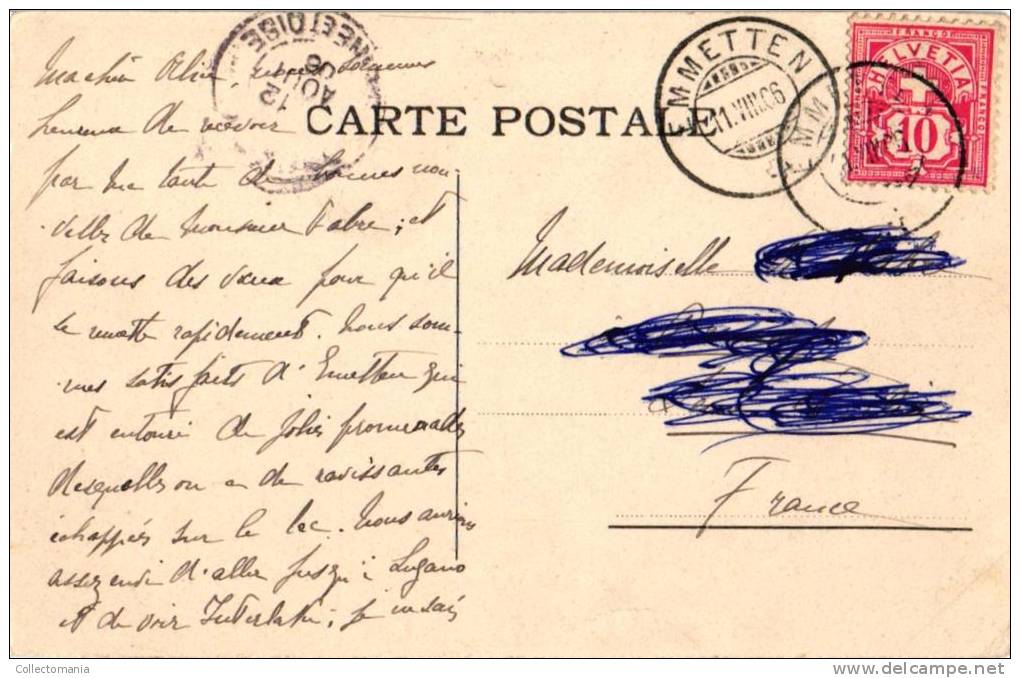 CARTE POSTALE
EMMETTEN
11.VIII.06
12
AOUT
06
FRANCO
HELVETIA
10
Ma chère
heureux de recevoir
par ma tante de bonnes nou-
velles de Monsieur Fabre ; et
faisons des vœux pour qu'il
se remette rapidement. Nous som-
mes satisfaits d'Emetten qui
est entouré de jolies promenades
desquelles on a de ravissantes
échappées sur le lac. Nous aurions
assez envie d'aller jusqu'à Lugano
et de voir Interlaken ; je ne sais
Mademoiselle
France
Collectomania
delcampe.net